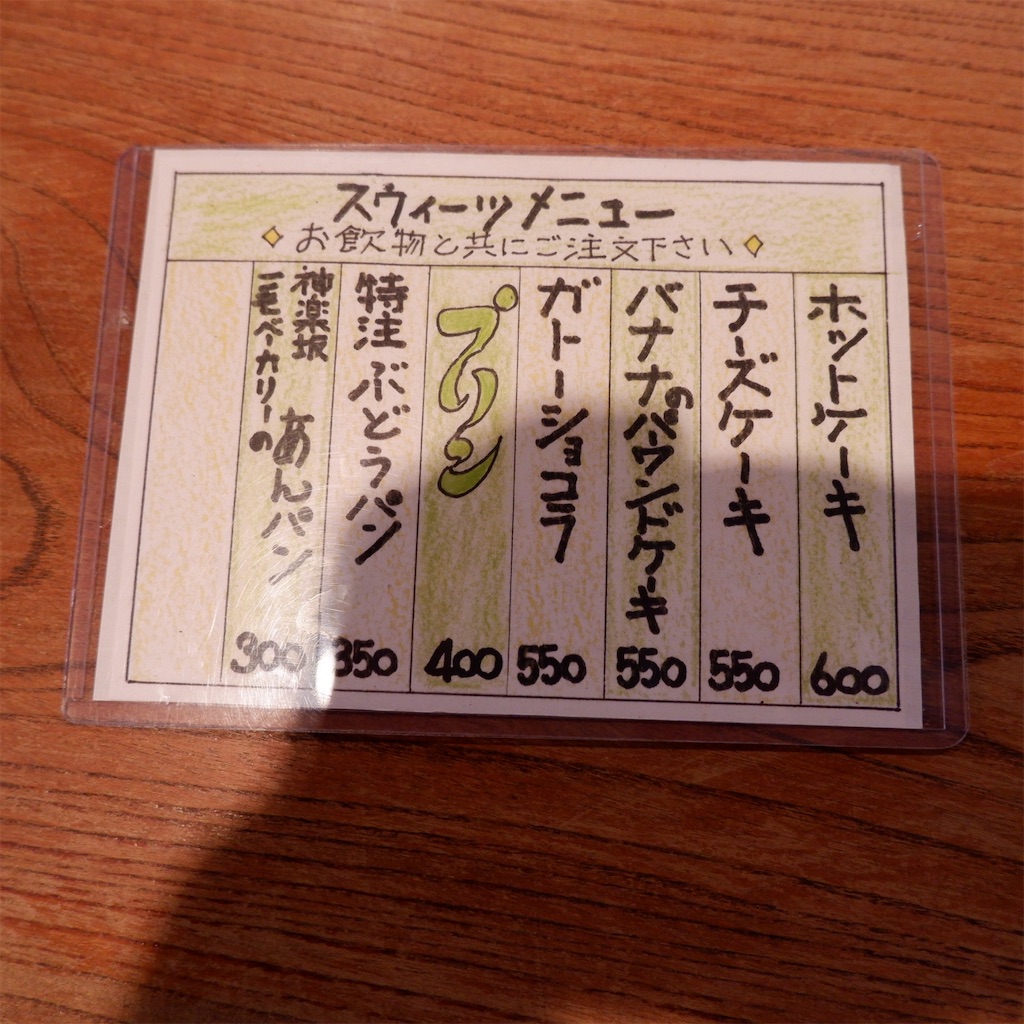 スウィーツメニュー
お飲物と共にご注文下さい
ホットケーキ
600
チーズケーキ
550
バナナのパウンドケーキ
550
ガトーショコラ
550
プリン
400
特注ぶどうパン
350
神楽坂
一毛ベーカリーの
あんパン
300